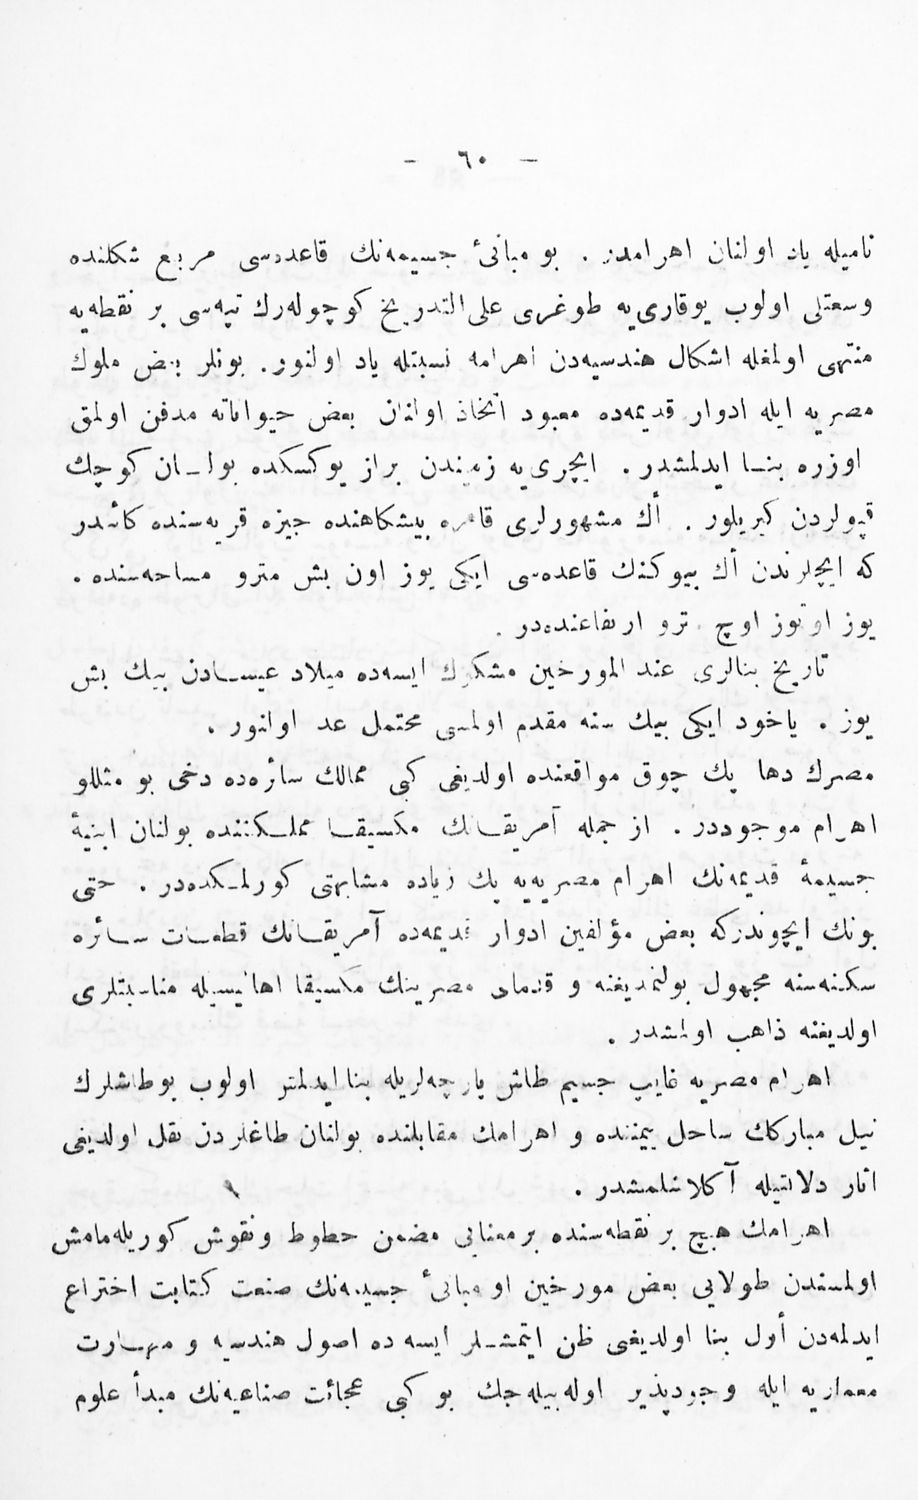 – ٦٠ –
ناميله ياد اولنان اهرامدر . بو مبانئ جسيمه‌نك قاعده‌سى مربع شكلنده
وسعتلى اولوب يوقارى‌يه طوغرى على التدريج كوچوله‌رك تپه‌سى بر نقطه‌يه
منتهى اولمغله اشكال هندسيه‌دن اهرامه نسبتله ياد اولنور . بونلر بعض ملوك
مصريه ايله ادوار قديمه‌ده معبود اتخاذ اولنان بعض حيواناته مدفن اولمق
اوزره بنـا ايدلمشدر . ايچرى‌يه زميندن براز يوكسكده بولـان كوچك
قپولردن كيريلور . أك مشهورلرى قاهره پيشكاهنده جيزه قريه‌سنده كائندر
كه ايچلرندن أك بيوكنك قاعده‌سى ايكى يوز اون بش مترو مساحه‌سنده .
يوز اوتوز اوچ مترو ارتفاعنده‌در .
تاريخ بنالرى عند المورخين مشكوك ايسه‌ده ميلاد عيسـادن بيك بش
يوز . ياخود ايكى بيك سنه مقدم اولمسى محتمل عد اولنور .
مصرك دها پك چوق مواقعنده اولديغى كى ممالك سائره‌ده دخى بو مثللو
اهرام موجوددر . از جمله آمريقـانك مكسيقـا مملـكتنده بولنان ابنيهٔ
جسيمهٔ قديمه‌نك اهرام مصريه‌يه پك زياده مشابهتى كورلمـكده‌در . حتى
بونك ايچوندركه بعض مؤلفين ادوار قديمه‌ده آمريقـانك قطعـات سـائره
سكنه‌سنه مجهول بولنمديغنه و قدماى مصرينك مكسيقا اهاليسيله مناسبتلرى
اولديغنه ذاهب اولمشدر .
اهرام مصريه غايت جسيم طاش پارچه‌لريله بنا ايدلمش اولوب بوطاشلرك
نيل مباركك ساحل يميننده و اهرامك مقابلنده بولنان طاغلردن نقل اولديغى
اثار دلالتيله آكلاشلمشدر .
اهرامك هيچ بر نقطه‌سنده بر معنايى مضمن خطوط و نقوش كوريله‌مامش
اولمسندن طولايى بعض مورخين او مبانئ جسيمه‌نك صنعت كتابت اختراع
ايدلمه‌دن أول بنا اولديغى ظن ايتمشـلر ايسه ده اصول هندسيه و مهـارت
معماريه ايله وجودپذير اوله‌بيله‌جك بو كبى عجائت صناعيه‌نك مبدأ علوم